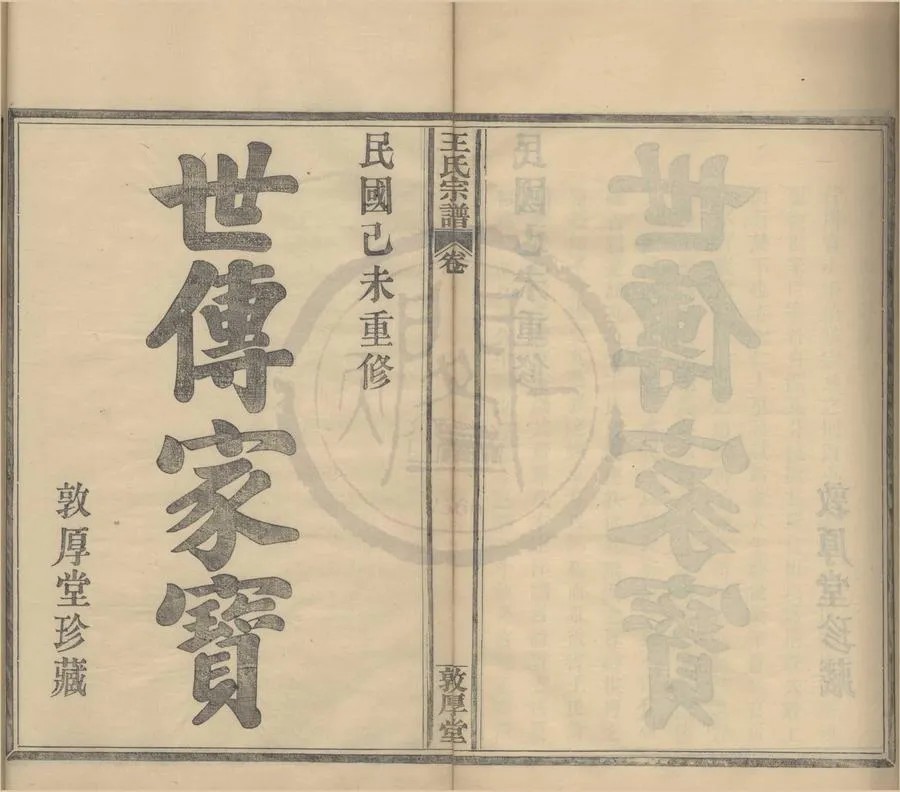 王氏宗譜
卷
敦厚堂
民國己未重修
世傳家寶
敦厚堂珍藏